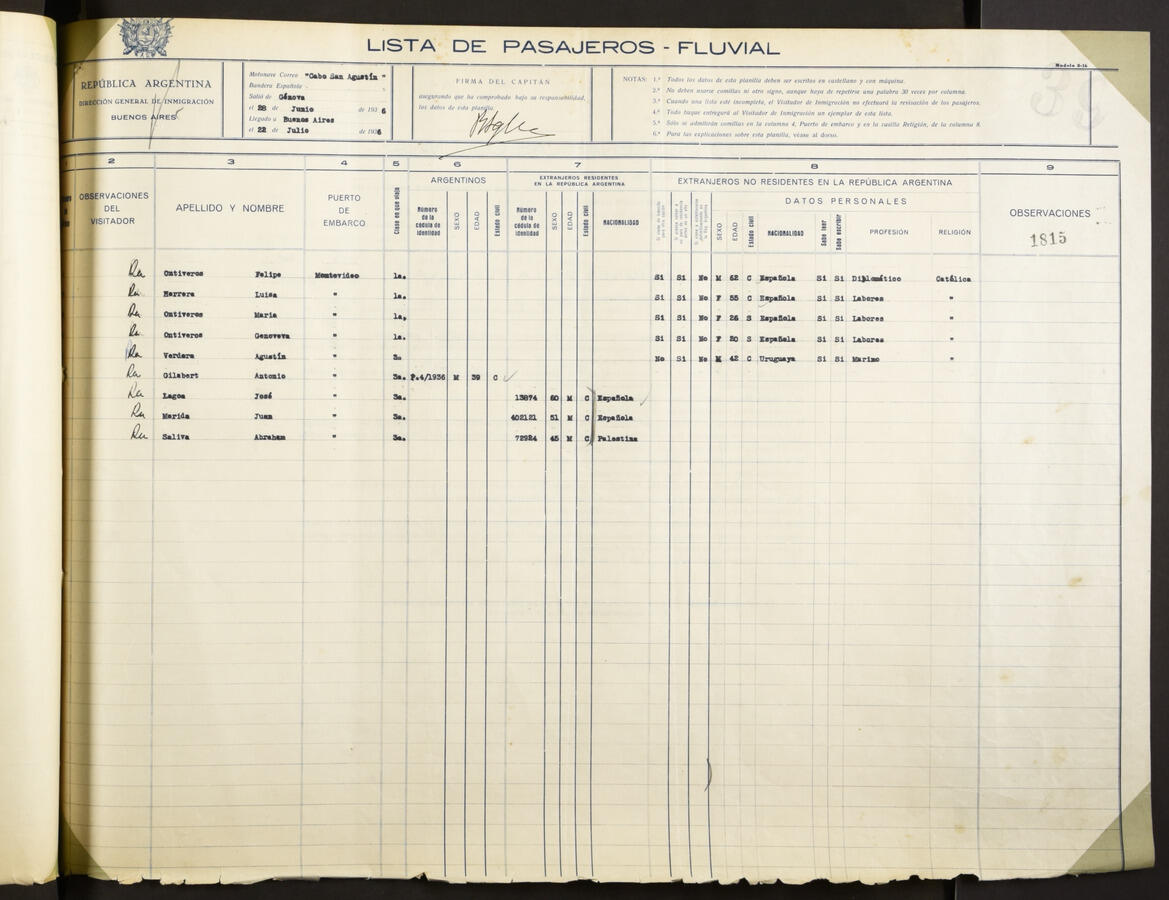 LISTA DE PASAJEROS - FLUVIAL
Modelo S-14
REPÚBLICA ARGENTINA
DIRECCIÓN GENERAL DE INMIGRACIÓN
BUENOS AIRES
Motonave Correo "Cabo San Agustín"
Bandera Española
Salió de Génova
el 28 de Junio de 1936
Llegado a Buenos Aires
el 22 de Julio de 1936
FIRMA DEL CAPITÁN
asegurando que ha comprobado bajo su responsabilidad,
los datos de esta planilla.
NOTAS: 1.ª Todos los datos de esta planilla deben ser escritos en castellano y con máquina.
2.ª No deben usarse comillas ni otro signo, aunque haya de repetirse una palabra 30 veces por columna.
3.ª Cuando una lista esté incompleta, el Visitador de Inmigración no efectuará la revisación de los pasajeros.
4.ª Todo buque entregará al Visitador de Inmigración un ejemplar de esta lista.
5.ª Sólo se admitirán comillas en la columna 4, Puerto de embarco y en la casilla Religión, de la columna 8.
6.ª Para las explicaciones sobre esta planilla, véase al dorso.
2 3 4 5 6 7 8 9
OBSERVACIONES DEL VISITADOR
APELLIDO Y NOMBRE
PUERTO DE EMBARCO
Clase en que viaja
ARGENTINOS
Número de la cédula de identidad
SEXO
EDAD
Estado civil
EXTRANJEROS RESIDENTES EN LA REPÚBLICA ARGENTINA
Número de la cédula de identidad
SEXO
EDAD
Estado civil
NACIONALIDAD
EXTRANJEROS NO RESIDENTES EN LA REPÚBLICA ARGENTINA
DATOS PERSONALES
SEXO
EDAD
Estado civil
NACIONALIDAD
Sabe leer
Sabe escribir
PROFESIÓN
RELIGIÓN
OBSERVACIONES
1815
Ontiveros Felipe Montevideo 1a. Si Si No M 62 C Española Si Si Diplomático Católica
Herrera Luisa " 1a. Si Si No F 55 C Española Si Si Labores "
Ontiveros Maria " 1a. Si Si No F 26 S Española Si Si Labores "
Ontiveros Genoveva " 1a. Si Si No F 20 S Española Si Si Labores "
Verdara Agustín " 3a No Si No M 42 C Uruguaya Si Si Marino "
Gilabert Antonio " 3a. P.4/1936 M 39 C
Lagoa José " 3a. 13874 60 M C Española
Marida Juan " 3a. 402121 51 M C Española
Saliva Abraham " 3a. 72924 45 M C Palestina